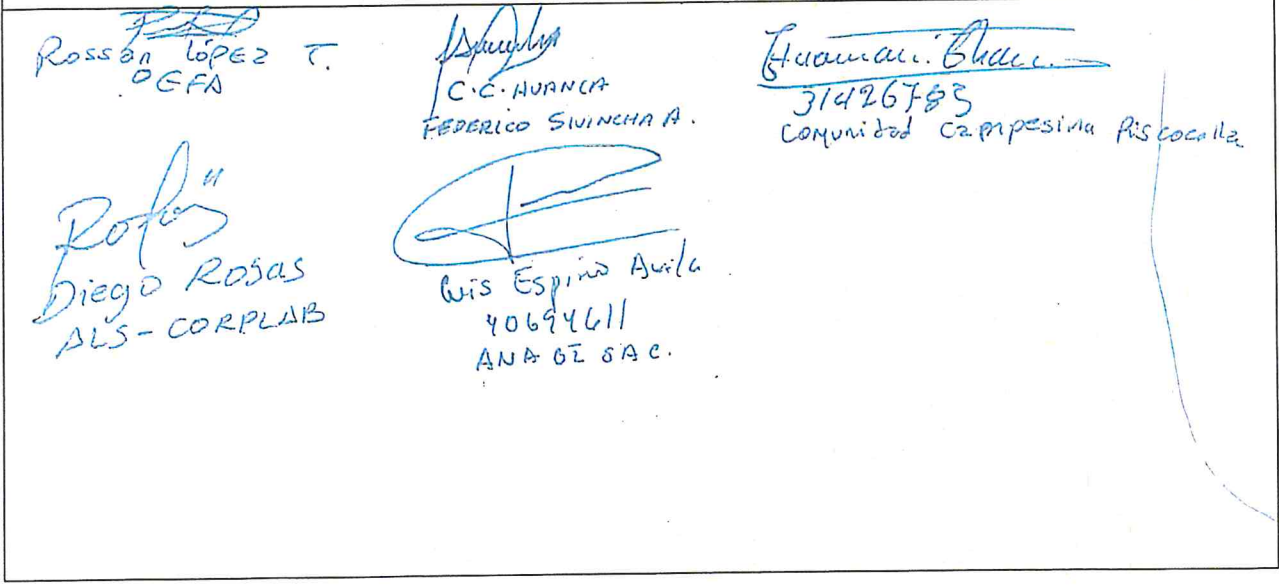 Rossán López T.
OEFA
C.C. HUANCA
FEDERICO SIVINCHA A.
Huamani
31426783
Comunidad Campesina Piscocalla
Diego Rojas
ALS - CORPLAB
Luis Espino Avila
40694611
ANA GE SAC.